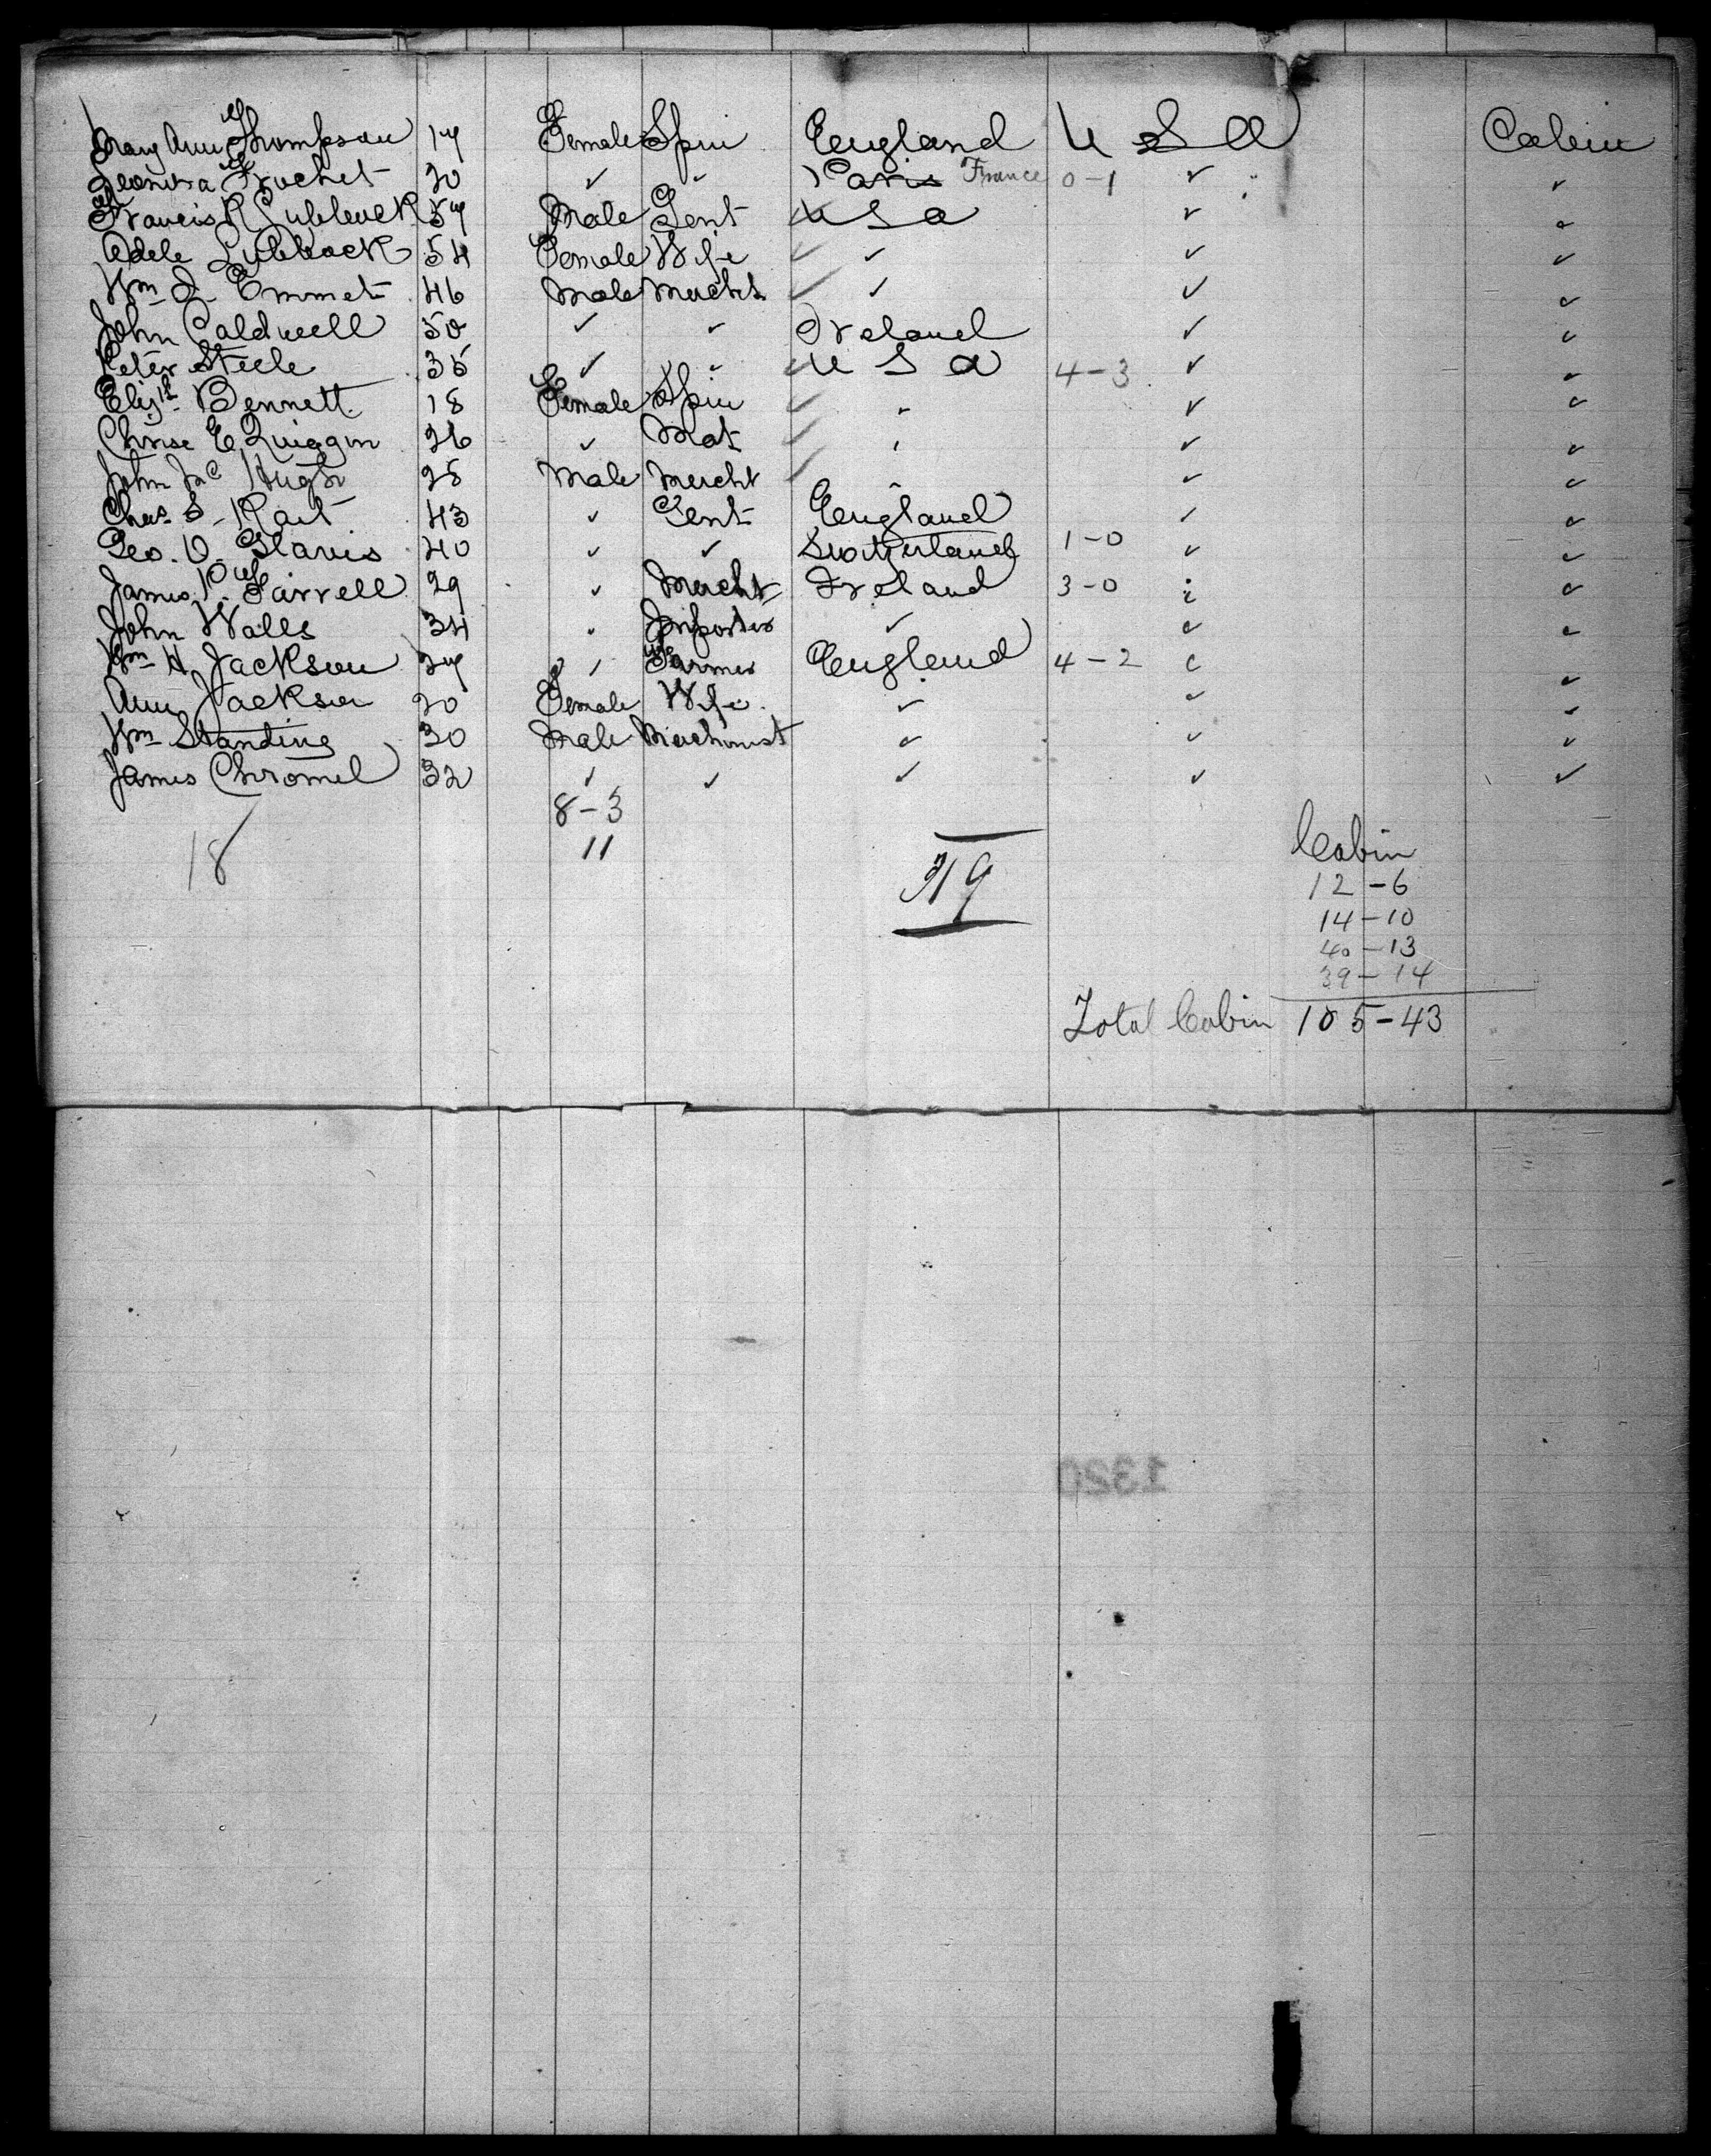 Mary Ann Thompson 17 Female Spin England U S A Cabin
Frochet 20 ✓ ✓ Paris France 0-1 ✓ ✓
Francis R Lubbock 57 Male Gent U S a ✓ ✓
Adele Lubbock 54 Female Wife ✓ ✓ ✓
Wm J. Emmet 46 Male Mercht ✓ ✓ ✓
John Caldwell 50 ✓ ✓ Ireland ✓ ✓
Peter Steele 35 ✓ ✓ U S a 4-3 ✓ ✓
Elizth Bennett 18 Female Spin ✓ ✓ ✓
E Quiggin 26 ✓ Mat ✓ ✓ ✓
John Mc Hugh 28 Male Mercht ✓ ✓ ✓
Chas S. Rait 43 ✓ Gent England ✓ ✓
Geo. V. Glavis 40 ✓ ✓ Switzerland 1-0 ✓ ✓
James P. Farrell 29 ✓ Mercht Ireland 3-0 ✓ ✓
John Walls 34 ✓ Importer ✓ ✓ ✓
Wm H. Jackson 27 ✓ Farmer England 4-2 ✓ ✓
Ann Jackson 20 Female Wife ✓ ✓ ✓
Wm Standing 30 Male Mechanist ✓ ✓ ✓
James Chromel 32 ✓ ✓ ✓ ✓ ✓
8-3
18 11 319 Cabin
12-6
14-10
40-13
39-14
Total Cabin 105-43
1320